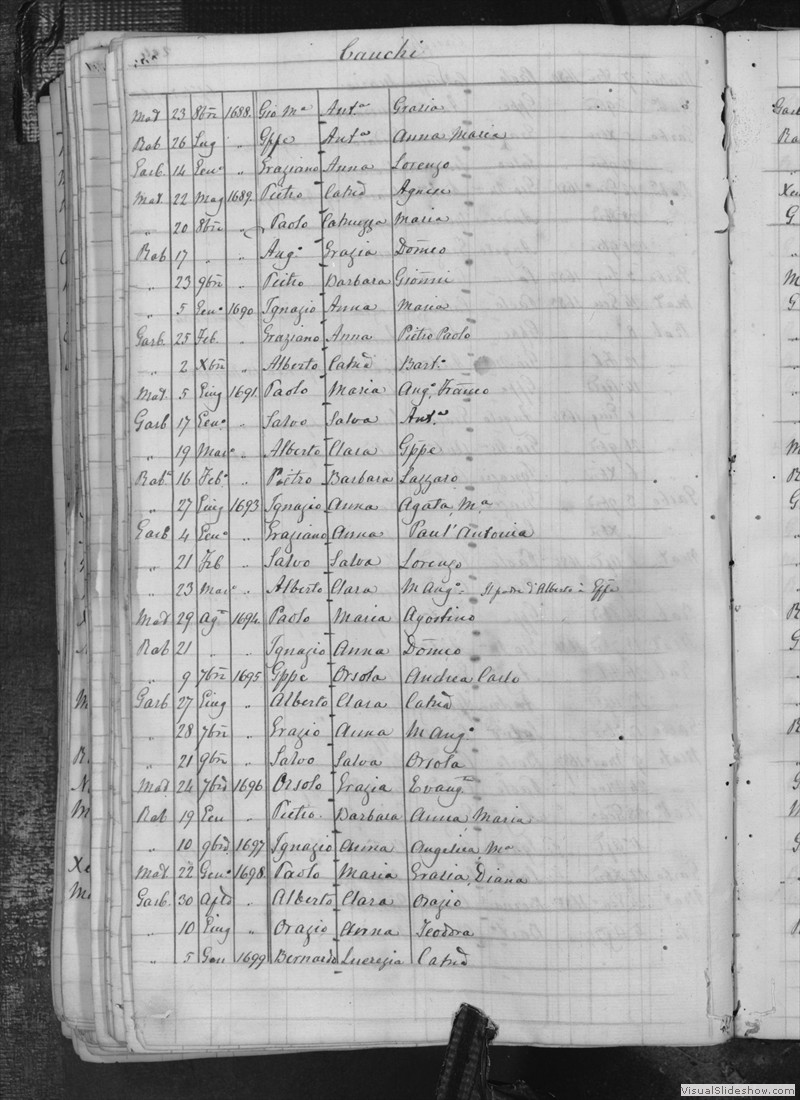 Cauchi
Mat. 23 8bre 1688. Gio Ma Anta Grasia
Rab 26 Lug „ Gppe Anta Anna Maria
Garb. 14 Geno „ Graziano Anna Lorenzo
Mat. 22 Mag 1689. Pietro Catnd Agnese
„ 20 8bre „ Paolo Catnuzza Maria
Rab 17 „ „ Augo Grazia Domeo
„ 23 9bre „ Pietro Barbara Gionni
„ 5 Geno 1690 Ignazio Anna Maria
Garb. 25 Feb. „ Graziano Anna Pietro Paolo
„ 2 Xbre „ Alberto Catnd Barto
Mat. 5 Giug 1691. Paolo Maria Augo, Franco
Garb 17 Geno „ Salvo Salva Anta
„ 19 Maro „ Alberto Clara Gppe
Rabo 16 Febo „ Pietro Barbara Lazzaro
„ 27 Giug 1693 Ignazio Anna Agata, Ma
Garb 4 Geno „ Graziano Anna Paul' Antonia
„ 21 Feb „ Salvo Salva Lorenzo
„ 23 Maro „ Alberto Clara M Auga Il padre d'Alberto è Gppe
Mat 29 Ago 1694. Paolo Maria Agostino
Rab 21 „ „ Ignazio Anna Domeo
„ 9 7bre 1695 Gppe Orsola Andrea Carlo
Garb. 27 Giug „ Alberto Clara Catnd
„ 28 7bre „ Grazio Anna M Auga
„ 21 9bre „ Salvo Salva Orsola
Mat 24 7bre 1696. Orsolo Grazia Evanga
Rab 19 Gen „ Pietro. Barbara Anna Maria
„ 10 9bre 1697 Ignazio Anna Angelica Ma
Mat. 22 Geno 1698. Paolo Maria Grasia, Diana
Garb. 30 Aple „ Alberto Clara Orazio
„ 10 Giug „ Orazio Anna Teodora
„ 5 Gen 1699 Bernardo Lucrezia Catnd
VisualSlideshow.com